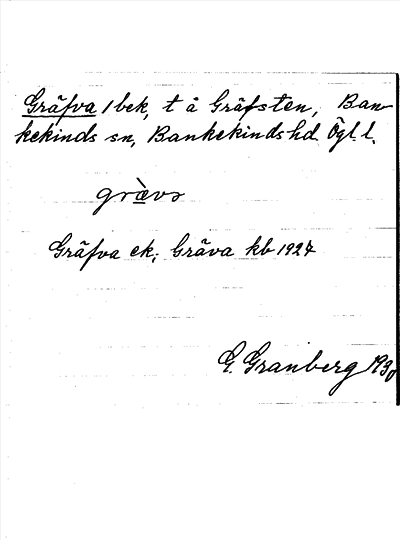 Gräfva 1 bek, t å Gräfsten, Ban-
kekinds sn, Bankekinds hd Ögl. l.
grævs
Gräfva ek; Gräva kb 1927
G. Granberg 1930